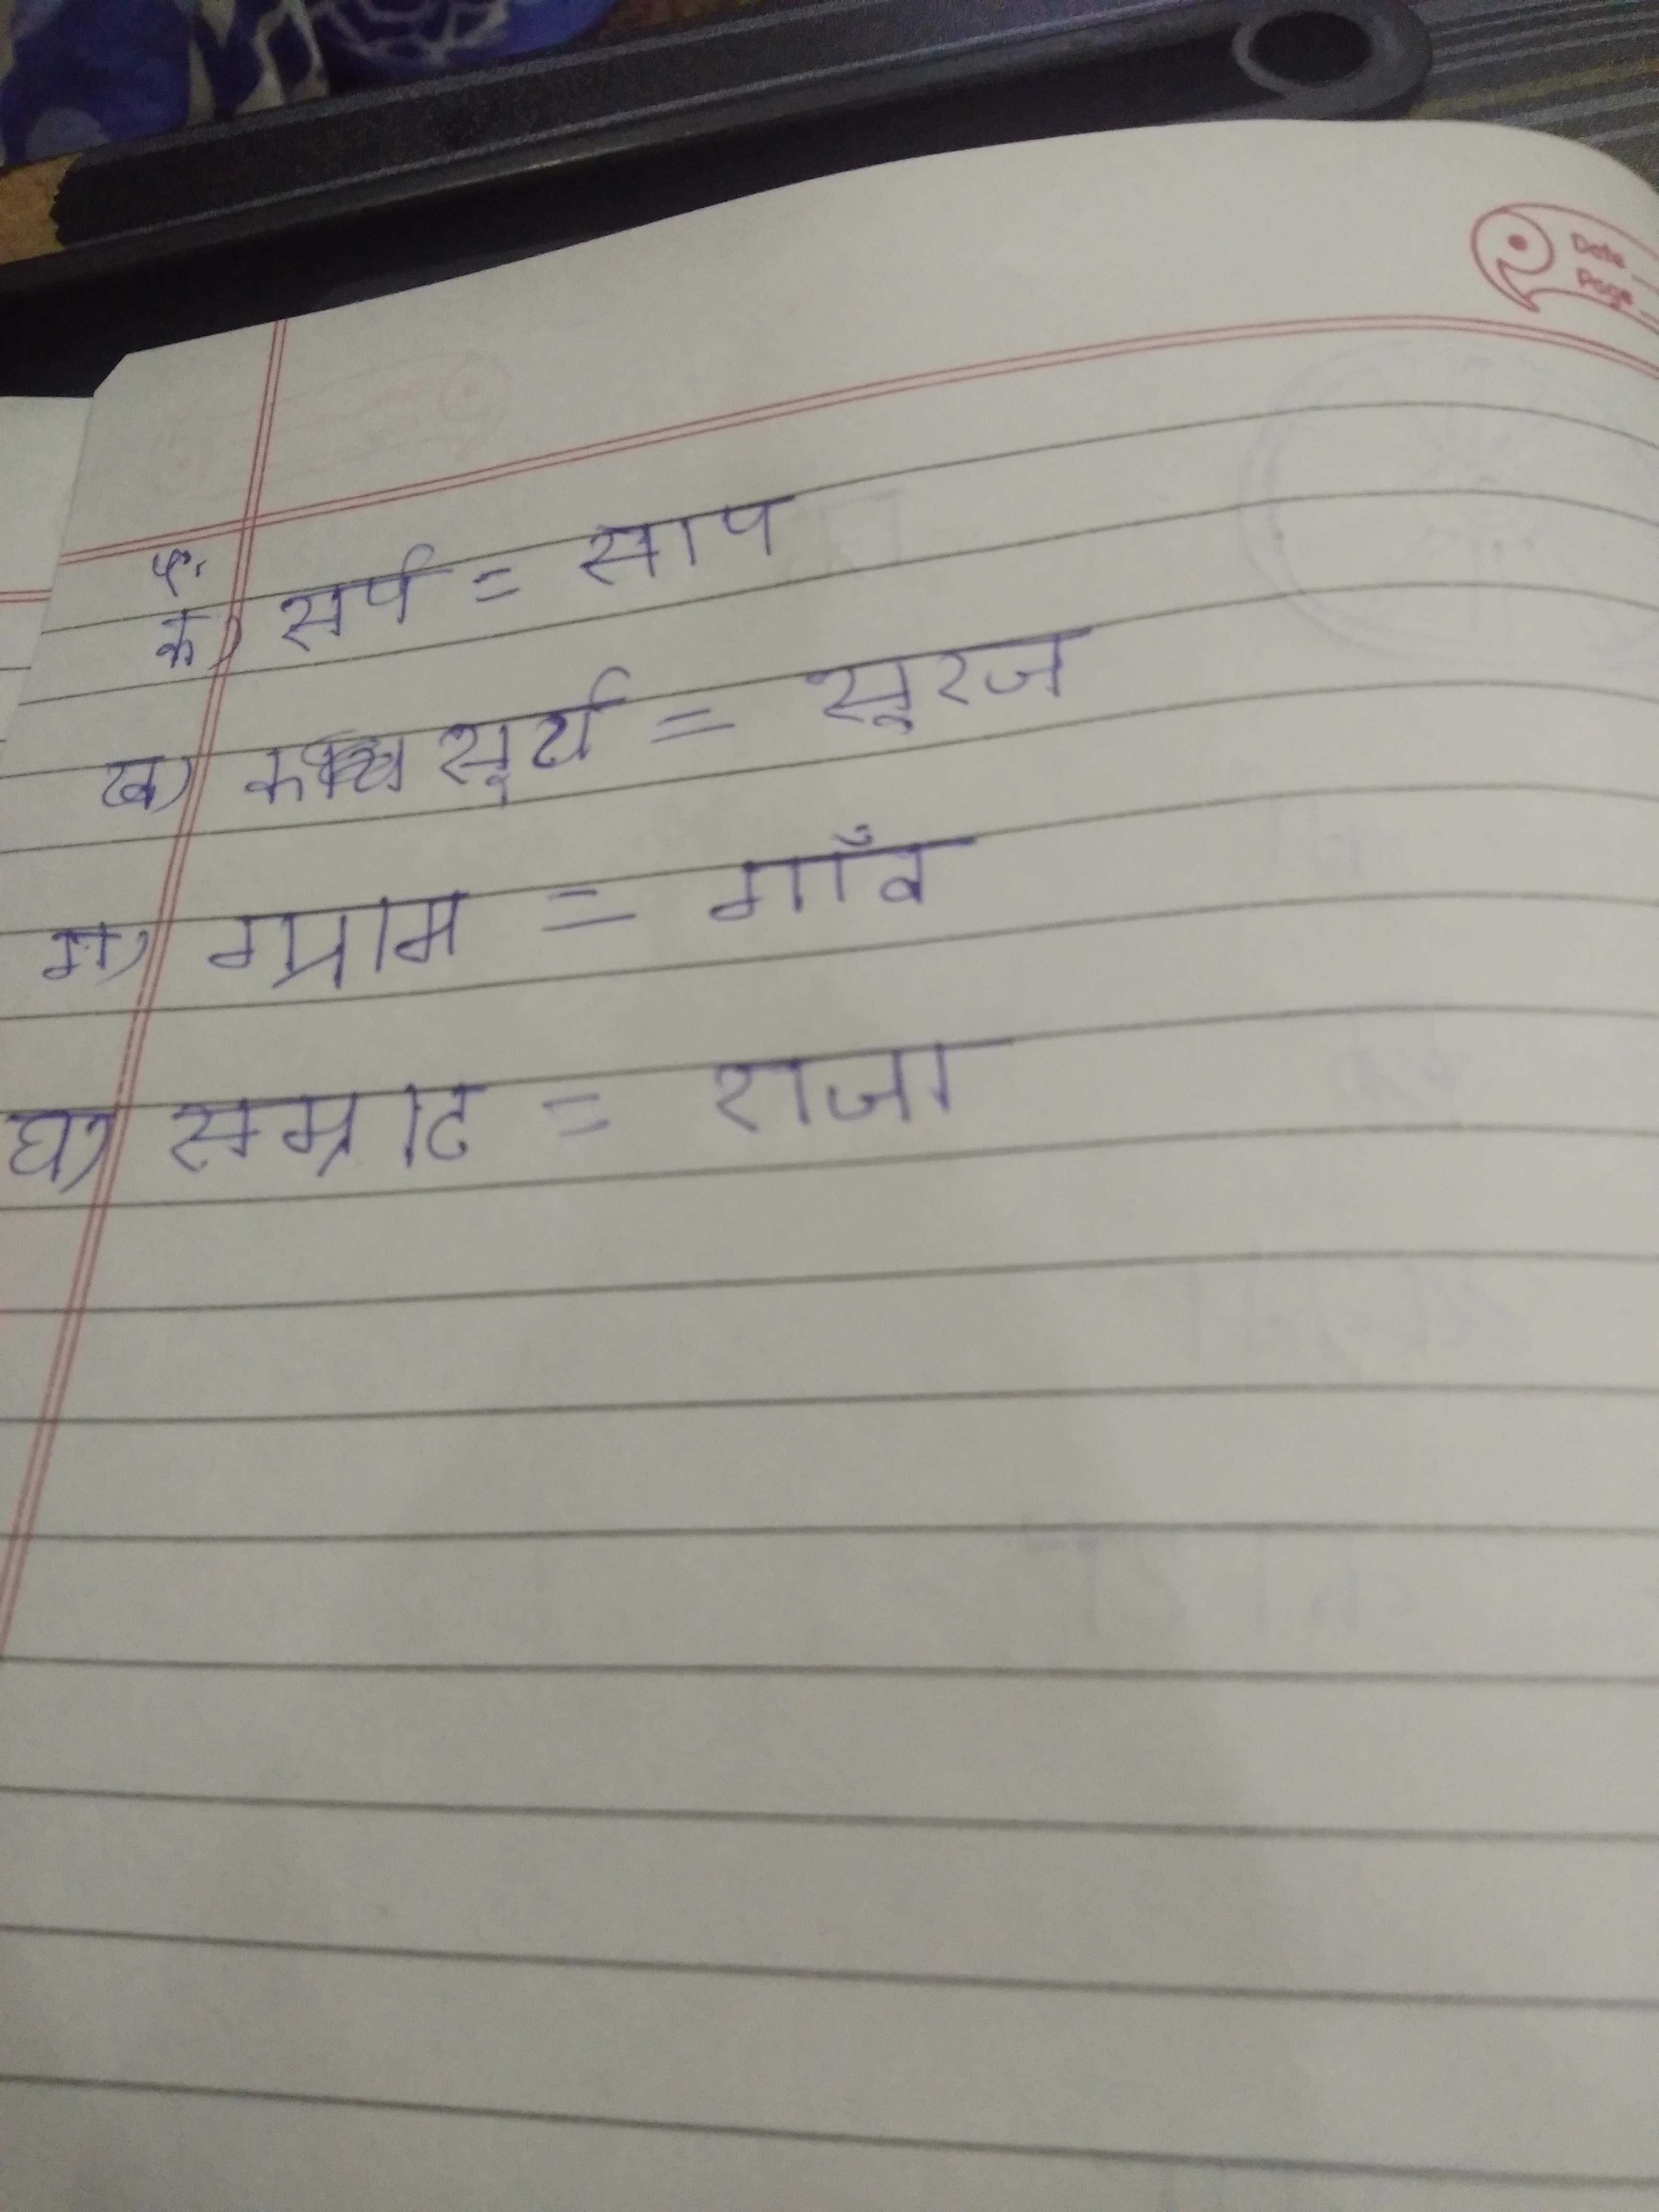 Date
Page
५.
क) सर्प = साप
ख) सूर्य = सूरज
ग) ग्राम = गाँव
घ) सम्राट = राजा